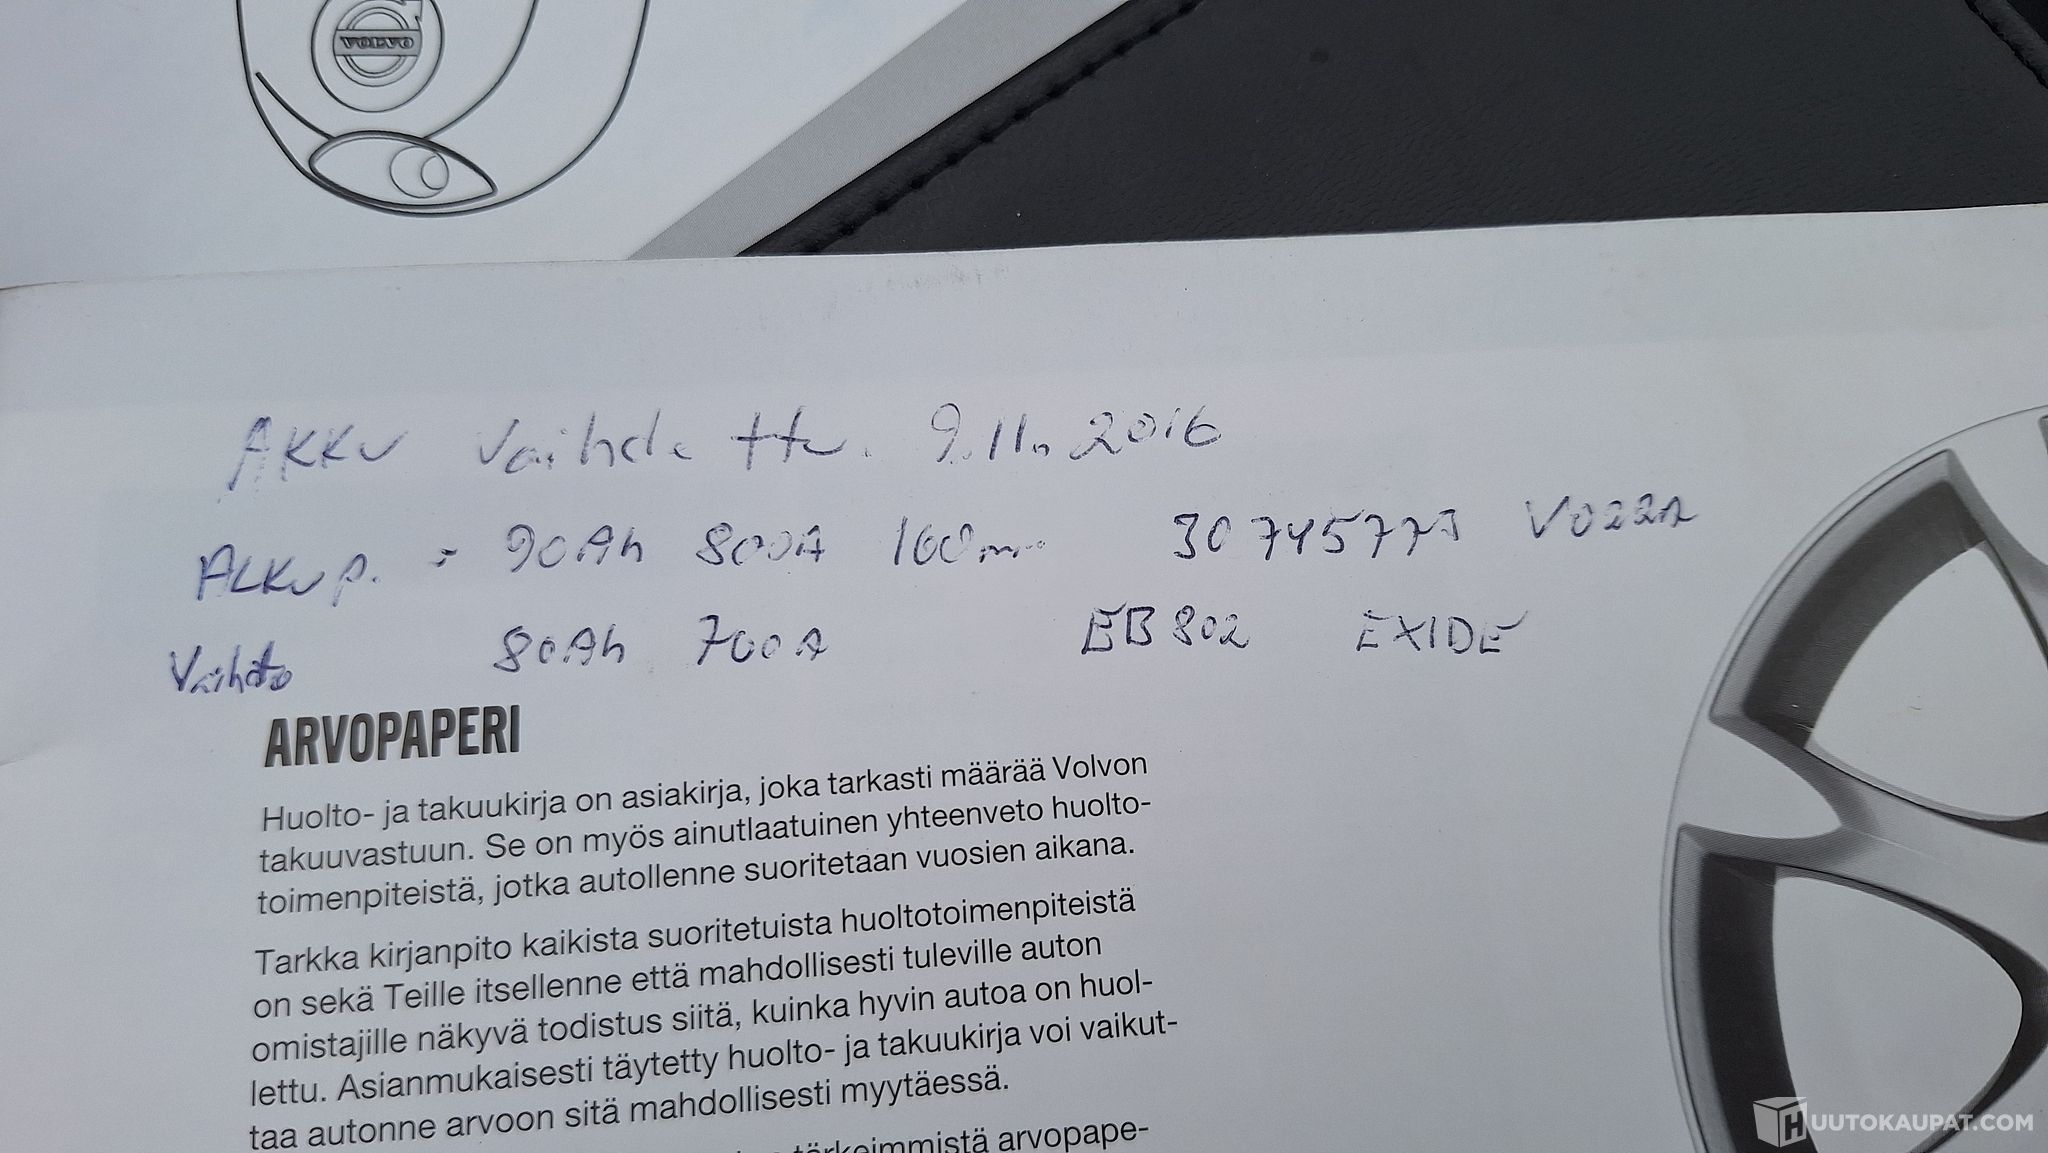 VOLVO
AKKU vaihdettu. 9.11.2016
Akkup. = 90Ah 800A 160mm 30745773 VO22A
Vaihto 80Ah 700A EB802 EXIDE
ARVOPAPERI
Huolto- ja takuukirja on asiakirja, joka tarkasti määrää Volvon
takuuvastuun. Se on myös ainutlaatuinen yhteenveto huolto-
toimenpiteistä, jotka autollenne suoritetaan vuosien aikana.
Tarkka kirjanpito kaikista suoritetuista huoltotoimenpiteistä
on sekä Teille itsellenne että mahdollisesti tuleville auton
omistajille näkyvä todistus siitä, kuinka hyvin autoa on huol-
lettu. Asianmukaisesti täytetty huolto- ja takuukirja voi vaikut-
taa autonne arvoon sitä mahdollisesti myytäessä.
tärkeimmistä arvopape-
HUUTOKAUPAT.COM